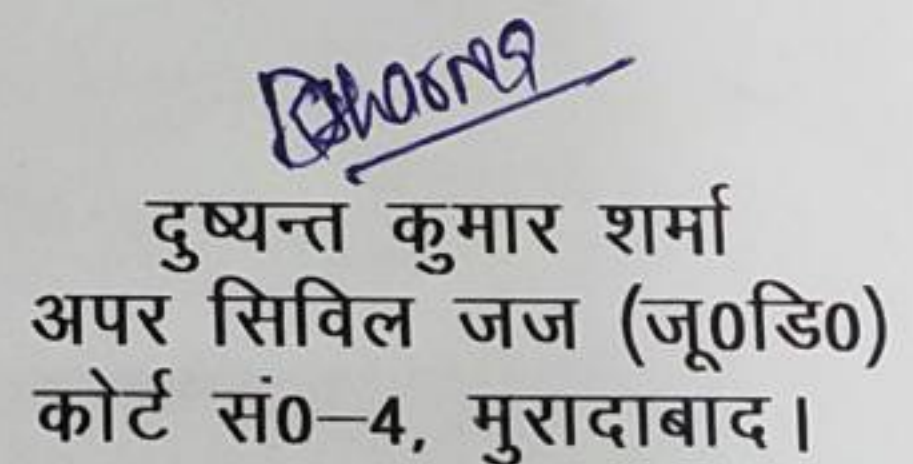 दुष्यन्त कुमार शर्मा
अपर सिविल जज (जू0डि0)
कोर्ट सं0–4, मुरादाबाद।